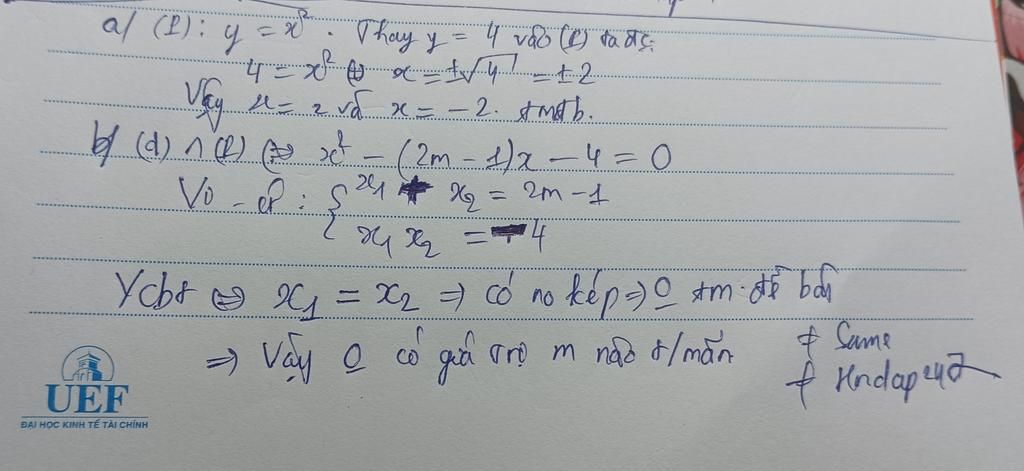 a/ (P): y = x². Thay y = 4 vào (P) ta đc:
4 = x² ⇔ x = ±√4 = ±2
Vậy x = 2 và x = -2. tmđb.
b/ (d) ∩ (P) ⇔ x² - (2m - 1)x - 4 = 0
Vi - ét: { x₁ + x₂ = 2m - 1
x₁ x₂ = -4
Ycbt ⇔ x₁ = x₂ ⇒ có no kép ⇒ 0 tm đề bài
⇒ Vậy 0 có giá trị m nào t/mãn
+ Same
+
UEF
ĐẠI HỌC KINH TẾ TÀI CHÍNH